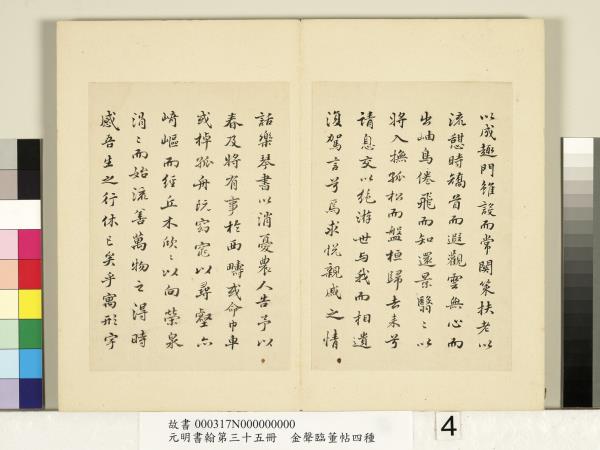 以成趣門雖設而常關策扶老以
流憩時矯首而遐觀雲無心而
出岫鳥倦飛而知還景翳〻以
將入撫孤松而盤桓歸去来兮
請息交以絶游世与我而相遺
復駕言兮焉求悦親戚之情
話樂琴書以消憂農人告予以
春及將有事於西疇或命巾車
或棹孤舟既窈窕以尋壑亦
崎嶇而經丘木欣〻以向榮泉
涓〻而始流善萬物之得時
感吾生之行休已矣乎寓形宇
故書 000317N000000000
元明書翰第三十五冊 金聲臨董帖四種
4